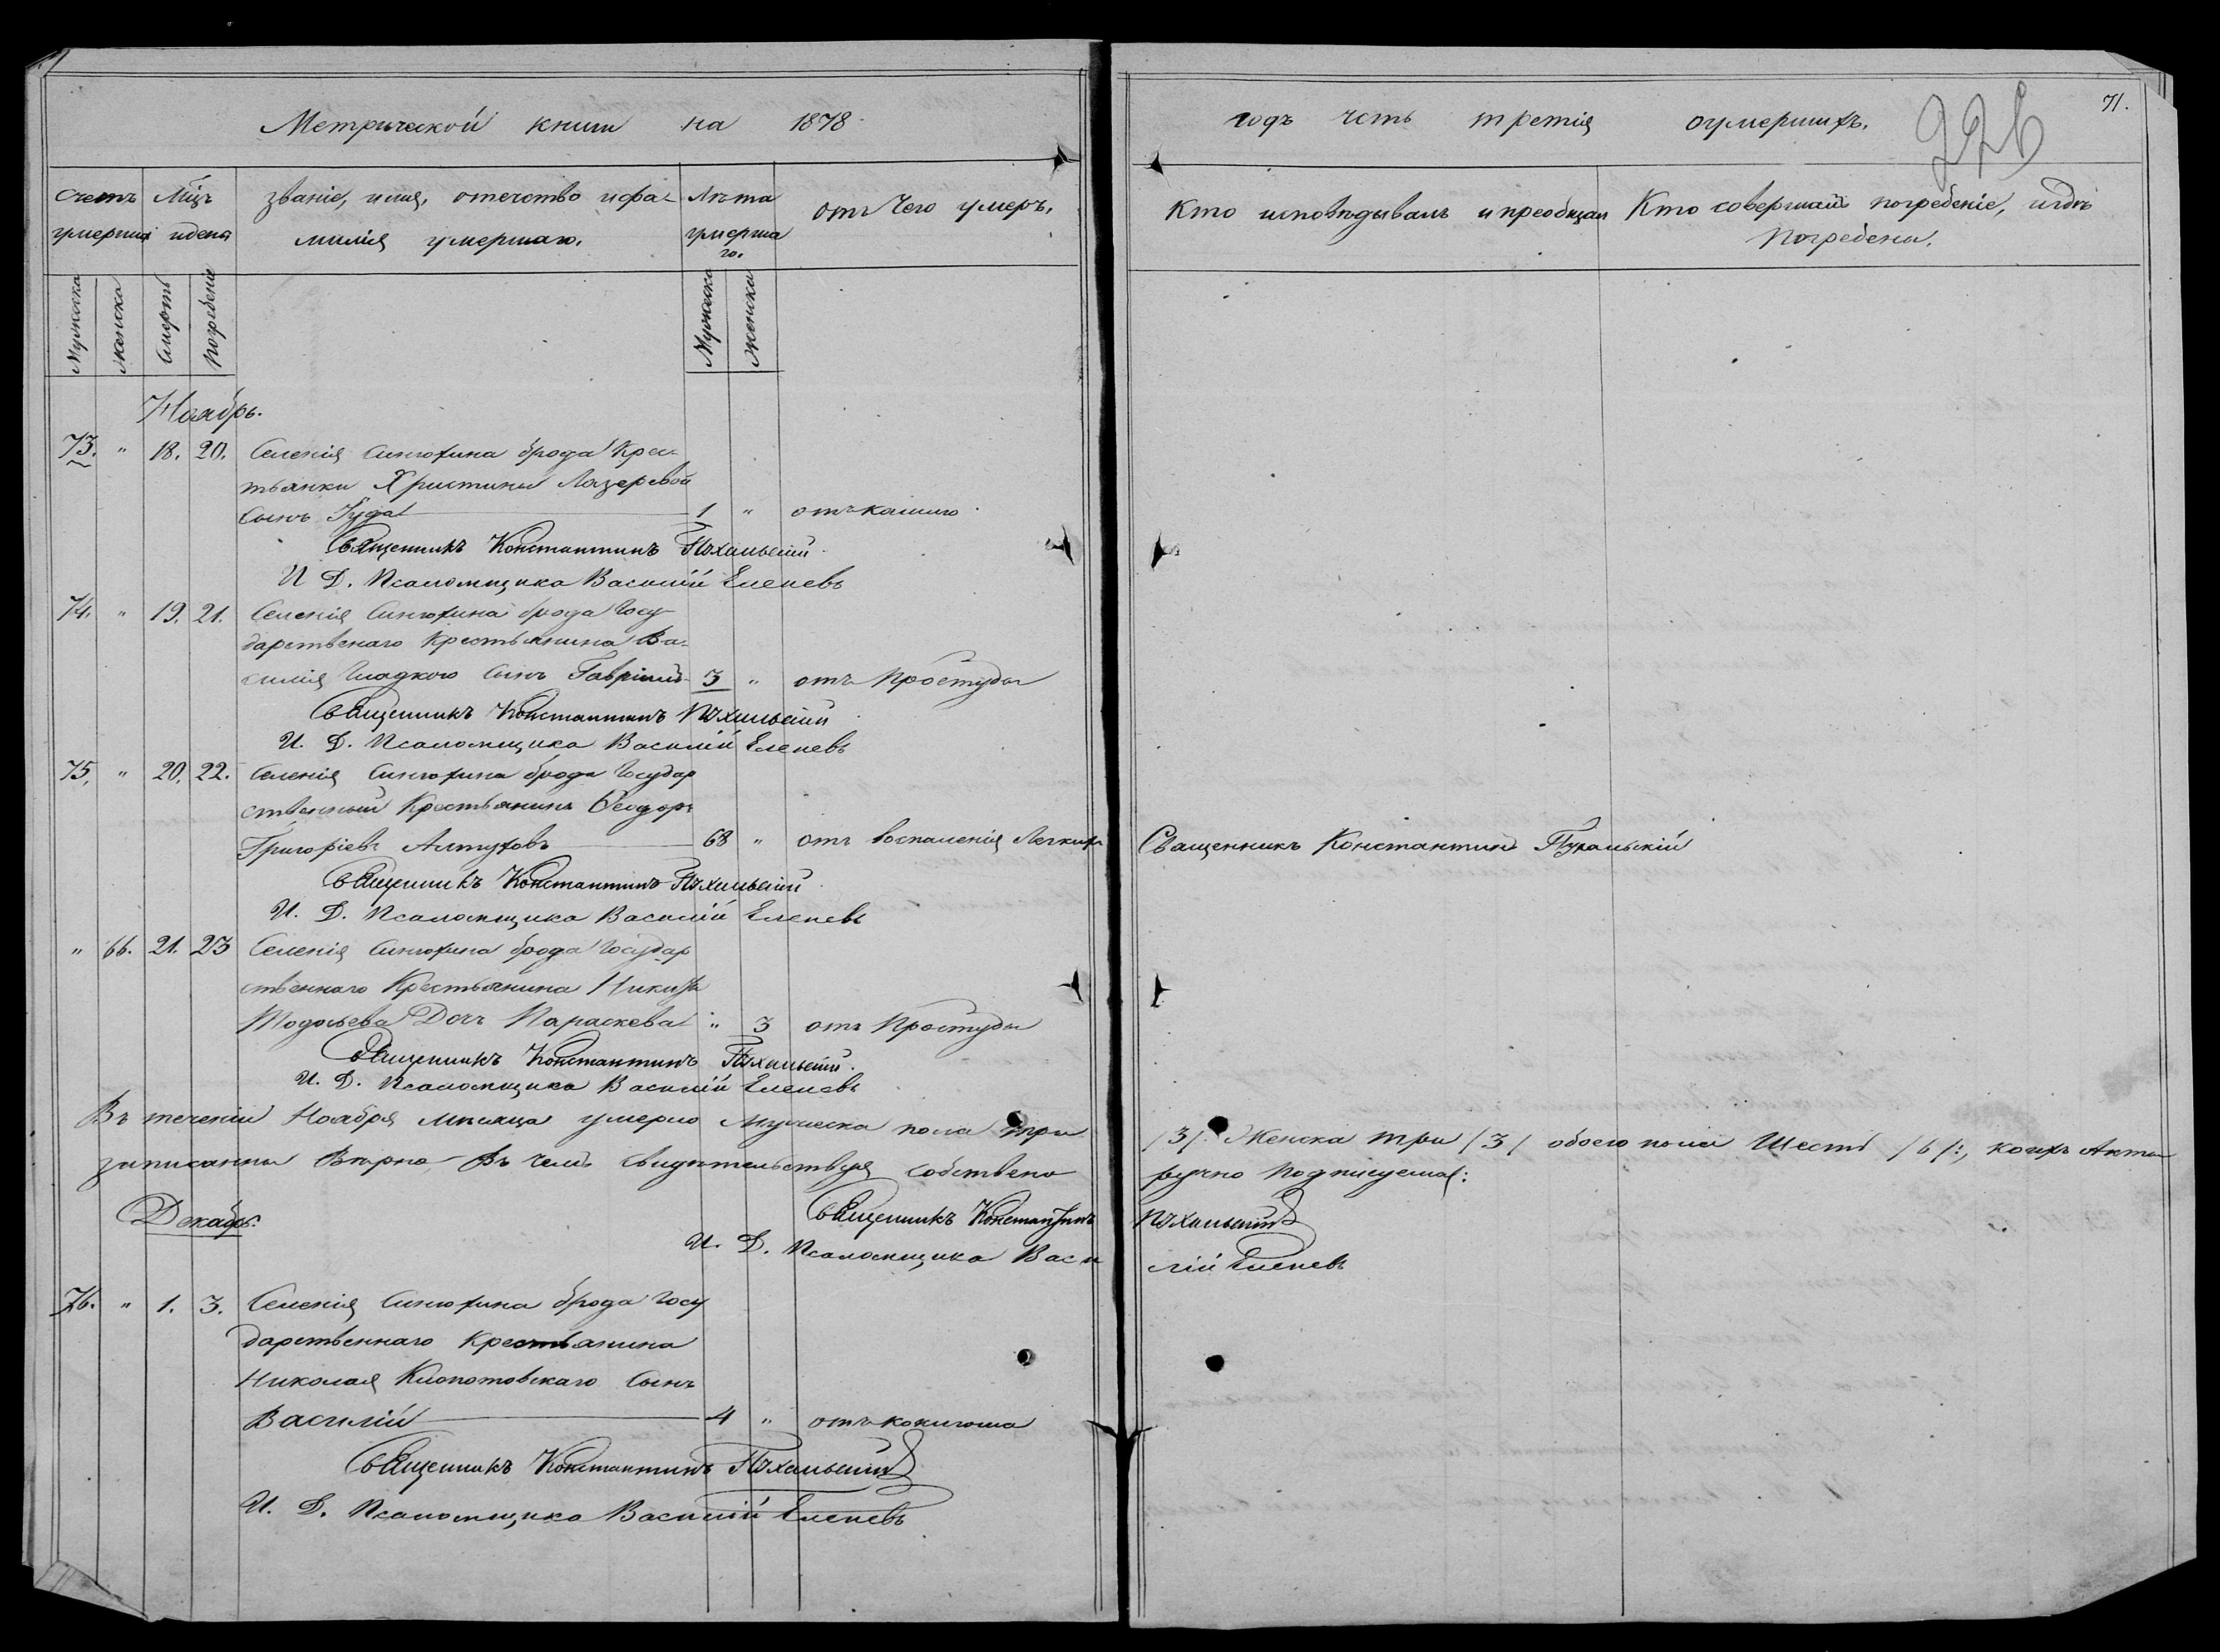 Метрической книги на 1878
годъ честь третія оумершихъ.
226
71.
Счетъ умершихъ
Мцъ и день
званіе, имя, отечество и фамилія умершаго.
Лѣта умершаго.
отъ Чего умеръ.
Кто исповѣдывалъ и преобщал
Кто совершалъ погребеніе, и гдѣ Погребены.
Мужеска
Женска
Смерть
Погребеніе
Мужеска
Женска
Ноябрь.
73. " 18. 20. Селенія Синюхина брода Крес-
тьянки Христины Лазеревой
Сынъ Іуда 1 " отъ кашлю
Священникъ Константинъ Пухальскій
И Д. Псаломщика Василій Еленевъ
74. " 19. 21. Селенія Синюхина брода Госу-
дарственаго Крестьянина Ва-
силія Гладкого Сынъ Гавріилъ 3 " отъ Простуды
Священникъ Константинъ Пухальскій
И. Д. Псаломщика Василій Еленевъ
75. " 20. 22. Селенія Синюхина брода Государ
ственный Крестьянинъ Феодоръ
Григоріевъ Алтуховъ 68 " отъ воспаленія Легкихъ Священникъ Константинъ Пухальскій
Священникъ Константинъ Пухальскій
И. Д. Псаломщика Василій Еленевъ
" 66. 21. 23 Селенія Синюхина брода Государ
ственнаго Крестьянина Никиты
Тодосьева Дочъ Параскева " 3 отъ Простуды
Священникъ Константинъ Пухальскій
И. Д. Псаломщика Василій Еленевъ
Въ теченіи Ноября мѣсяца умерло мужеска пола три /3/. Женска три /3/ обоего пола Шесть /6/:, коихъ Акты
записанны Вѣрно Въ чемъ Свидѣтельствуя собствено ручно Подписуемся:
Священникъ Константинъ Пухальскій
И. Д. Псаломщика Василій Еленевъ
Декабрь.
76. " 1. 3. Селенія Синюхина брода Госу
дарственнаго Крестьянина
Николая Клопотовскаго Сынъ
Василій 4 " отъ коклюша
Священникъ Константинъ Пухальскій
И. Д. Псаломщика Василій Еленевъ